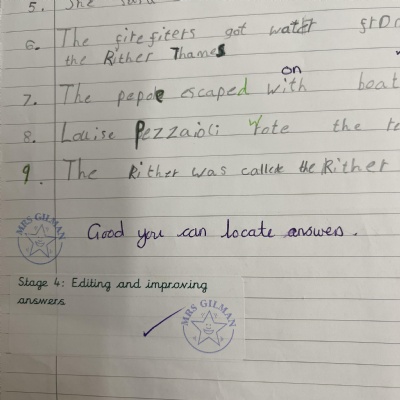 5. She
6. The firefiters got water from
the Rither Thames
on
7. The pepole escaped with boat
8. Louise Pezzaioli wrote the re
9. The Rither was callck the Rither
MRS GILMAN
Good you can locate answers.
Stage 4: Editing and improving
answers
MRS GILMAN